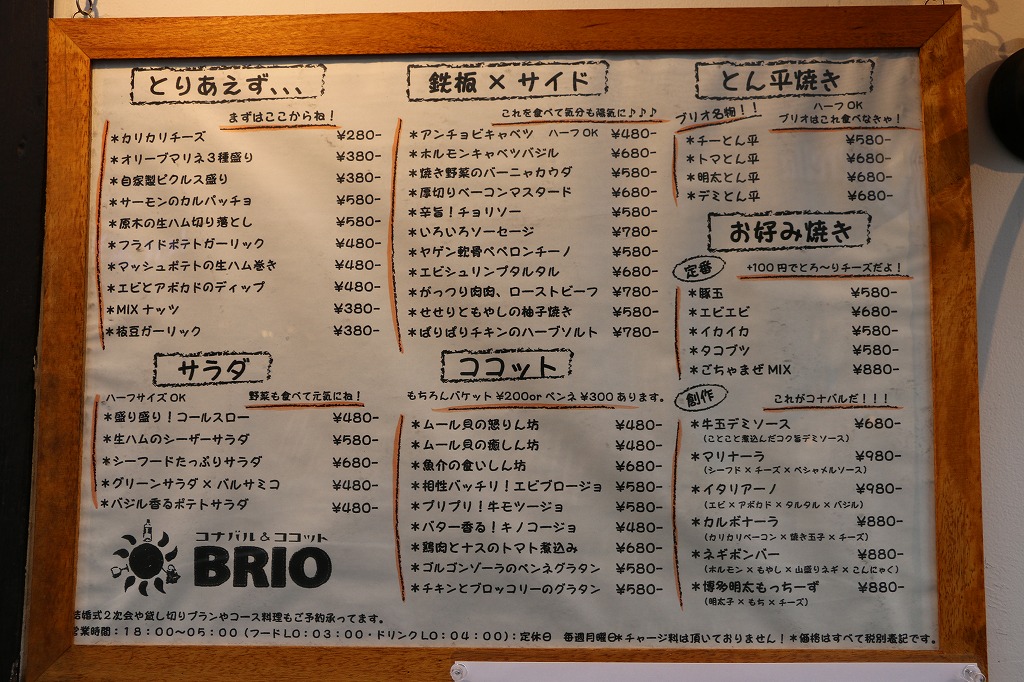 とりあえず、、、
まずはここからね！
＊カリカリチーズ ¥280-
＊オリーブマリネ３種盛り ¥380-
＊自家製ピクルス盛り ¥380-
＊サーモンのカルパッチョ ¥580-
＊原木の生ハム切り落とし ¥580-
＊フライドポテトガーリック ¥480-
＊マッシュポテトの生ハム巻き ¥480-
＊エビとアボカドのディップ ¥480-
＊MIX ナッツ ¥380-
＊枝豆ガーリック ¥380-
サラダ
ハーフサイズ OK 野菜も食べて元気にね！
＊盛り盛り！コールスロー ¥480-
＊生ハムのシーザーサラダ ¥580-
＊シーフードたっぷりサラダ ¥680-
＊グリーンサラダ × バルサミコ ¥480-
＊バジル香るポテトサラダ ¥480-
コナバル & ココット
BRIO
鉄板 × サイド
これを食べて気分も陽気に♪♪♪
＊アンチョビキャベツ ハーフ OK ¥480-
＊ホルモンキャベツバジル ¥680-
＊焼き野菜のバーニャカウダ ¥580-
＊厚切りベーコンマスタード ¥680-
＊辛旨！チョリソー ¥580-
＊いろいろソーセージ ¥780-
＊ヤゲン軟骨ペペロンチーノ ¥580-
＊エビシュリンプタルタル ¥680-
＊がっつり肉肉、ローストビーフ ¥780-
＊せせりともやしの柚子焼き ¥580-
＊ぱりぱりチキンのハーブソルト ¥780-
ココット
もちろんバケット ¥200or ペンネ ¥300 あります。
＊ムール貝の怒りん坊 ¥480-
＊ムール貝の癒しん坊 ¥480-
＊魚介の食いしん坊 ¥680-
＊相性バッチリ！エビブロージョ ¥580-
＊プリプリ！牛モツージョ ¥580-
＊バター香る！キノコージョ ¥480-
＊鶏肉とナスのトマト煮込み ¥680-
＊ゴルゴンゾーラのペンネグラタン ¥580-
＊チキンとブロッコリーのグラタン ¥580-
とん平焼き
ブリオ名物！！ ハーフ OK
ブリオはこれ食べなきゃ！
＊チーとん平 ¥580-
＊トマとん平 ¥680-
＊明太とん平 ¥680-
＊デミとん平 ¥680-
お好み焼き
定番 +100 円でとろ〜りチーズだよ！
＊豚玉 ¥580-
＊エビエビ ¥680-
＊イカイカ ¥580-
＊タコブツ ¥580-
＊ごちゃまぜ MIX ¥880-
創作 これがコナバルだ！！！
＊牛玉デミソース ¥680-
（ことこと煮込んだコク旨デミソース）
＊マリナーラ ¥980-
（シーフド × チーズ × ベシャメルソース）
＊イタリアーノ ¥980-
（エビ × アボカド × タルタル × バジル）
＊カルボナーラ ¥880-
（カリカリベーコン × 焼き玉子 × チーズ）
＊ネギボンバー ¥880-
（ホルモン × もやし × 山盛りネギ × こんにゃく）
＊博多明太もっちーず ¥880-
（明太子 × もち × チーズ）
結婚式２次会や貸し切りプランやコース料理もご予約承ってます。
営業時間：１８：００〜０５：００（フード LO：０３：００・ドリンク LO：０４：００）：定休日 毎週月曜日＊チャージ料は頂いておりません！＊価格はすべて税別表記です。